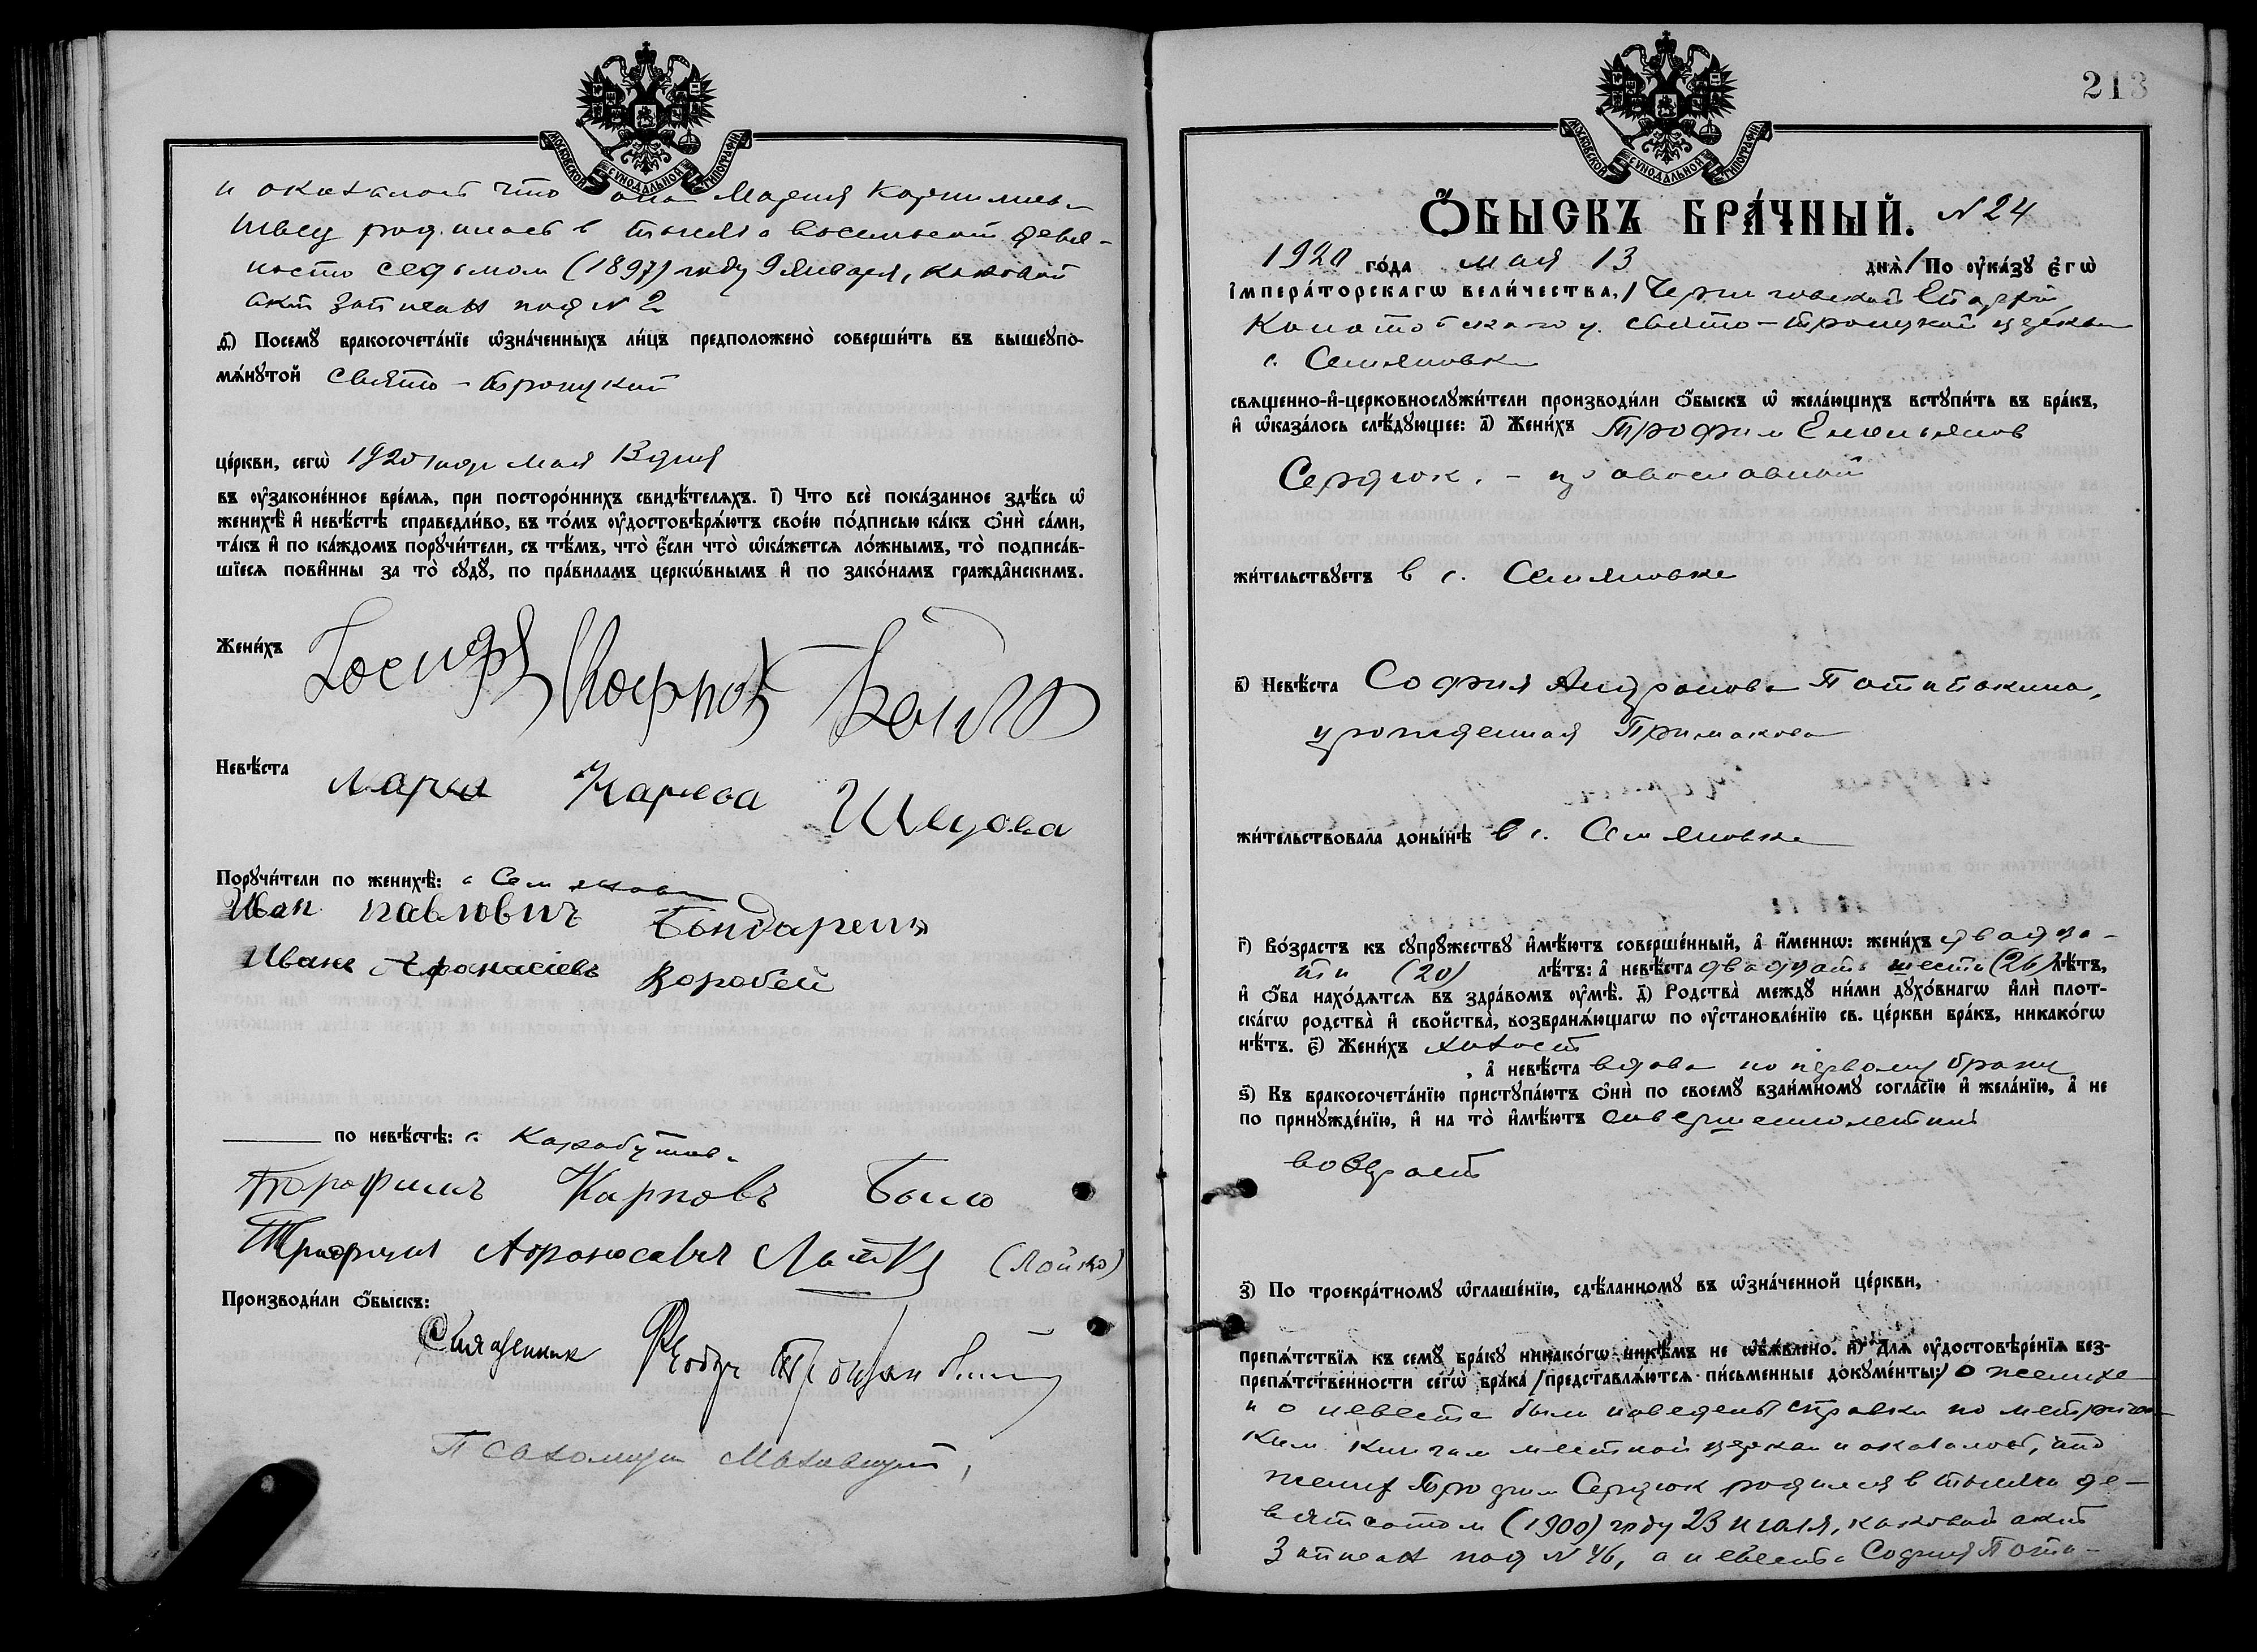 МОСКОВСКОЙ СѴНОДАЛЬНОЙ ТИПОГРАФІИ
и оказалось что она Мария Корнилиева
Швец родилась в тысяча восемьсот девя-
носто седьмом (1897) году 9 января, каковой
акт записан под № 2
д҃) Посемꙋ бракосочета́нїе ѡ҆зна́ченныхъ ли́цъ предположено̀ соверши́ть въ вышеꙋпо-
мѧ́нꙋтой свято-троицкой
це́ркви, сегѡ̀ 1920 года мая 13 дня
въ ᲂу҆законе́нное вре́мѧ, при посторо́ннихъ свидѣ́телѧхъ. і҃) Что всѐ пока́занное здѣ́сь ѡ҆
женихѣ̀ и҆ невѣ́стѣ справедли́во, въ то́мъ ᲂу҆достовѣрѧ́ютъ свое́ю по́дписью ка́къ ѻ҆нѝ са́ми,
та́къ и҆ по ка́ждомъ порꙋчи́тели, съ тѣ́мъ, что̀ є҆́сли что̀ ѡ҆ка́жетсѧ ло́жнымъ, то̀ подписа́в-
шїесѧ пови́нны за то̀ сꙋдꙋ̀, по пра́виламъ церкѡ́внымъ и҆ по зако́намъ гражда́нскимъ.
Жени́хъ Іосифъ Карпов
Невѣ́ста Мария Карнева Шведова
Порꙋчи́тели по женихѣ̀: с Семяновки
Иван павлович Бондаренк
Иванъ Афонасіевъ Воробей
по невѣ́стѣ: с. Карабутова
Трофимъ Карповъ Было
Трофим Афонасавич Лойко (Лойко)
Производи́ли ѻ҆́быскъ:
Священник Феодор
Псаломщик
213
МОСКОВСКОЙ СѴНОДАЛЬНОЙ ТИПОГРАФІИ
Ѻ҆́БЫСКЪ БРА́ЧНЫЙ. № 24
1920 го́да мая 13 днѧ̀ / По ᲂу҆ка́зꙋ є҆гѡ̀
і҆мпера́торскагѡ вели́чества, / Черниговской Епархии
Конотопского у. свято-троицкой церкви
с. Семяновки
свѧщенно-и҆-церковнослꙋжи́тели производи́ли ѻ҆́быскъ ѡ҆ жела́ющихъ встꙋпи́ть въ бра́къ,
и҆ ѡ҆каза́лось слѣ́дꙋющее: а҃) Жени́хъ Трофим Емельянов
Сердюк, - православный
жи́тельствꙋетъ в с. Семяновке
в҃) Невѣ́ста София Андронова Потапакина,
урожденная Примакова
жи́тельствовала доны́нѣ в с. Семяновке
г҃) Во́зрастъ къ сꙋпрꙋ́жествꙋ и҆мѣ́ютъ соверше́нный, а҆ и҆́меннѡ: жени́хъ двадца-
ти (20) лѣ́тъ: а҆ невѣ́ста двадцати шести (26) лѣ́тъ,
и҆ ѻ҆́ба нахо́дѧтсѧ въ здра́вомъ ᲂу҆мѣ̀. д҃) Родства̀ междꙋ ни́ми дꙋхо́внагѡ и҆лѝ плот-
ска́гѡ родства̀ и҆ сво́йства̀, возбранѧ́ющагѡ по ᲂу҆становле́нїю св. це́ркви бра́къ, никако́гѡ
нѣ́тъ. є҃) Жени́хъ холост
, а҆ невѣ́ста вдова по первому браку
ѕ҃) Къ бракосочета́нїю пристꙋпа́ютъ ѻ҆нѝ по своемꙋ̀ взаи́мномꙋ согла́сїю и҆ жела́нїю, а҆ не
по принꙋжде́нїю, и҆ на то̀ и҆мѣ́ютъ совершеннолетний
возраст
з҃) По троекра́тномꙋ ѡ҆глаше́нїю, сдѣ́ланномꙋ въ ѡ҆зна́ченной це́ркви,
препѧ́тствїѧ къ семꙋ̀ бра́кꙋ никако́гѡ никѣ́мъ не ѡ҆б̾ѧ́влено. и҃) Длѧ ᲂу҆достовѣре́нїѧ без-
препѧ́тственности сегѡ̀ бра́ка / представлѧ́ютсѧ пи́сьменные докꙋме́нты: / о женихе
и о невесте были наведены справки по метричес-
ким книгам местной церкви и оказалось, что
жених Трофим Сердюк родился в тысяча де-
вятсотом (1900) году 23 июля, каковой акт
записан под № 46, а невеста София Пота-